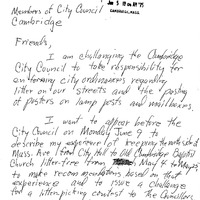 Members of City Council
Cambridge
Jun 5 10 AM '75
CAMBRIDGE, MASS.
Friends,
I am challenging the Cambridge
City Council to take responsibility for
enforcing city ordinances regarding
litter on our streets and the pasting
of posters on lamp posts and mailboxes.
I want to appear before the
City Council on Monday June 9 to
describe my experience of keeping the north side of
Mass. Ave from City Hall to Old Cambridge Baptist
Church litter-free from May 4 to May 25
to make recommendations based on that
experience and to issue a challenge
for a litter-picking contest to the Councillors